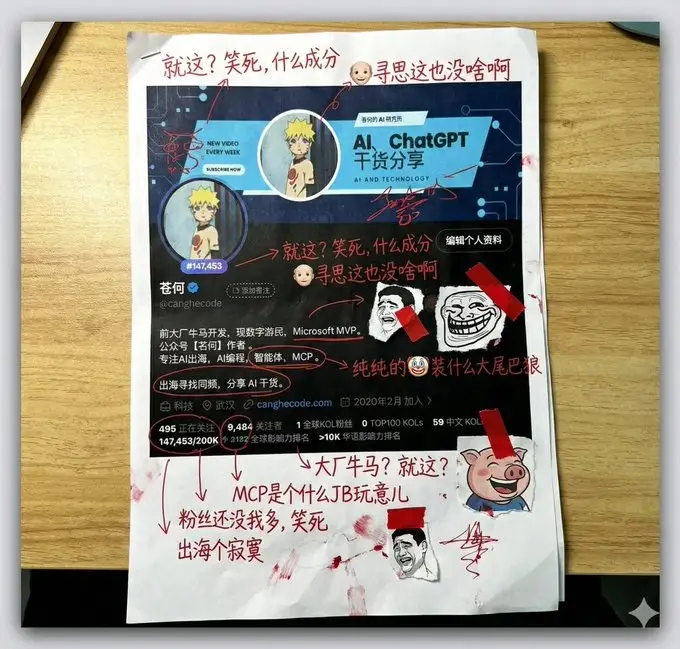 就这？笑死，什么成分
寻思这也没啥啊
NEW VIDEO
EVERY WEEK
SUBSCRIBE NOW
AI、ChatGPT
干货分享
AI AND TECHNOLOGY
#147,453
就这？笑死，什么成分
寻思这也没啥啊
编辑个人资料
苍何
添加备注
@canghecode
前大厂牛马开发，现数字游民，Microsoft MVP。
公众号【苍何】作者。
专注AI出海，AI编程，智能体，MCP。
纯纯的🤡装什么大尾巴狼
出海寻找同频，分享 AI 干货。
科技 武汉 canghecode.com 2020年2月 加入
495 正在关注 9,484 关注者 1 全球KOL粉丝 0 TOP100 KOLs 59 中文 KOL
147,453/200K 2182 全球影响力排名 >10K 华语影响力排名
大厂牛马？就这？
MCP是个什么JB玩意儿
粉丝还没我多，笑死
出海个寂寞